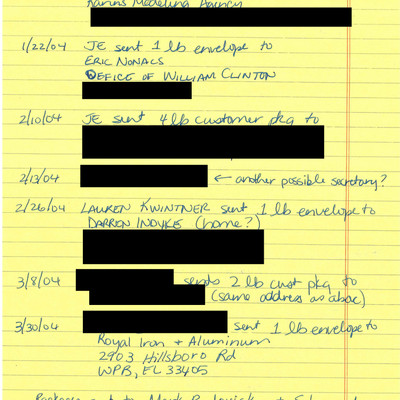 Karins Modeling Agency
1/22/04 JE sent 1 lb envelope to
ERIC NONACS
OFFICE OF WILLIAM CLINTON
2/10/04 JE sent 4 lb customer pkg to
2/13/04 ← another possible secretary?
2/26/04 LAUREN KWINTNER sent 1 lb envelope to
DARREN INDYKE (home?)
3/8/04 sends 2 lb cust pkg to
(same address as above)
3/30/04 sent 1 lb envelope to
Royal Iron + Aluminum
2903 Hillsboro Rd
WPB, FL 33405